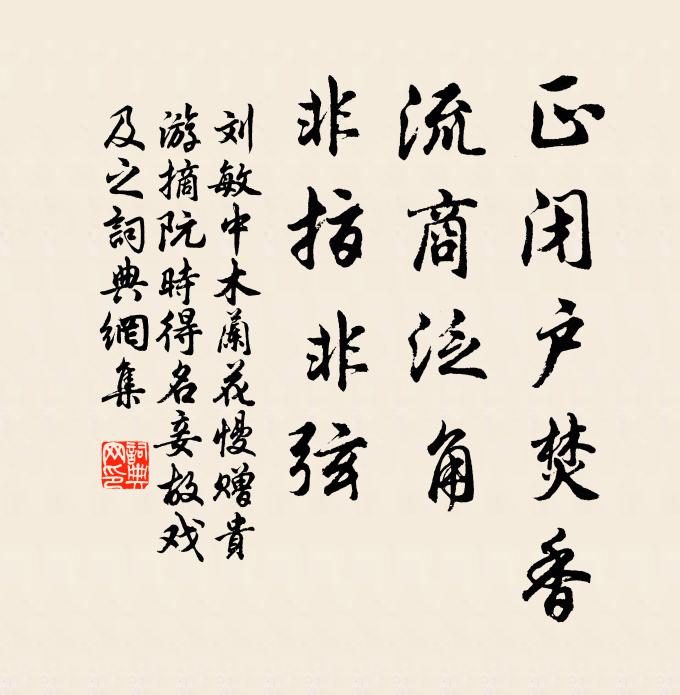 正闭户焚香
流商泛角
非指非弦
刘敏中木蘭花慢赠貴
游摘阮時得名妾故戏
及之詞典網集
詞典
网印